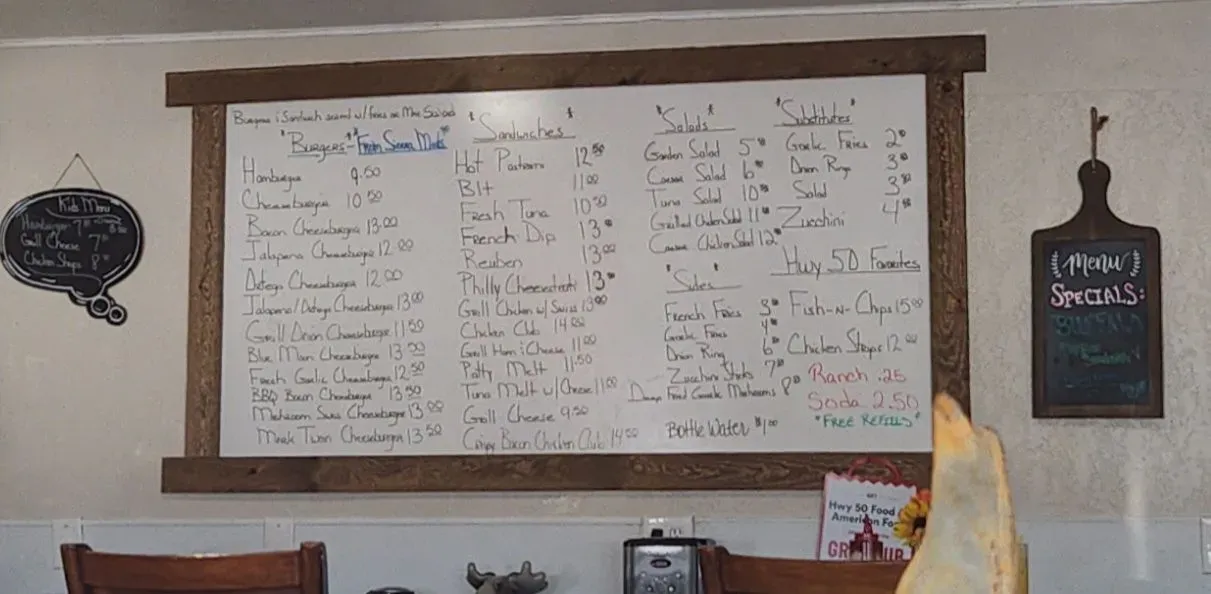 Kids Menu
Hamburger 7
Grill Cheese 7
Chicken Strips 8
Burgers & Sandwich served w/ fries or Mac Salad
"Burgers" - "From Sierra Meats"
Hamburger 9.50
Cheeseburger 10.50
Bacon Cheeseburger 13.00
Jalapeno Cheeseburger 12.00
Ortega Cheeseburger 12.00
Jalapeno/Ortega Cheeseburger 13.00
Grill Onion Cheeseburger 11.50
Blue Moon Cheeseburger 13.50
Fresh Garlic Cheeseburger 12.50
BBQ Bacon Cheeseburger 13.50
Mushroom Swiss Cheeseburger 13.00
Mark Twain Cheeseburger 13.50
"Sandwiches"
Hot Pastrami 12.50
Blt 11.00
Fresh Tuna 10.50
French Dip 13.00
Reuben 13.00
Philly Cheesesteak 13.00
Grill Chicken w/ Swiss 13.00
Chicken Club 14.00
Grill Ham & Cheese 11.00
Patty Melt 11.50
Tuna Melt w/ Cheese 11.00
Grill Cheese 9.50
Crispy Bacon Chicken Club 14.50
"Salads"
Garden Salad 5
Caesar Salad 6
Tuna Salad 10
Grilled Chicken Salad 11
Caesar Chicken Salad 12
"Sides"
French Fries 3
Garlic Fries 4
Onion Ring 6
Zucchini Sticks 7
Deep Fried Garlic Mushrooms 8
Bottle Water $1.00
"Substitutes"
Garlic Fries 2
Onion Rings 3
Salad 3
Zucchini 4
Hwy 50 Favorites
Fish-N-Chips 15.00
Chicken Strips 12.00
Ranch .25
Soda 2.50
"FREE REFILLS"
Menu
SPECIALS:
BUFFALO
Hwy 50 Food
American Fo
GR UB